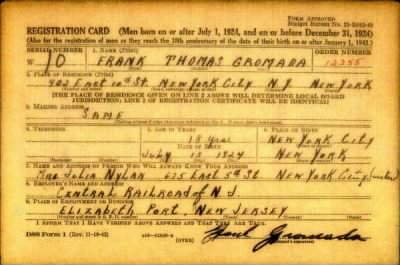 FORM APPROVED
REGISTRATION CARD (Men born on or after July 1, 1924, and on or before December 31, 1924)
(Also for the registration of men as they reach the 18th anniversary of the date of their birth on or after January 1, 1943.)
SERIAL NUMBER
1. NAME (Print)
ORDER NUMBER
W 10 FRANK THOMAS GROMADA 12255
2. PLACE OF RESIDENCE (Print)
402 East 10th St. NEW YORK CITY N.Y. NEW YORK
[THE PLACE OF RESIDENCE GIVEN ON LINE 2 ABOVE WILL DETERMINE LOCAL BOARD
JURISDICTION; LINE 2 OF REGISTRATION CERTIFICATE WILL BE IDENTICAL]
3. MAILING ADDRESS
SAME
4. TELEPHONE
5. AGE IN YEARS
6. PLACE OF BIRTH
18 yrs
NEW YORK CITY
DATE OF BIRTH
July 13 1924
NEW YORK
7. NAME AND ADDRESS OF PERSON WHO WILL ALWAYS KNOW YOUR ADDRESS
Mrs. Julia 635 East 5th St. NEW YORK CITY
8. EMPLOYER'S NAME AND ADDRESS
CENTRAL RAILROAD of N.J.
9. PLACE OF EMPLOYMENT OR BUSINESS
ELIZABETH PORT, NEW JERSEY
I AFFIRM THAT I HAVE VERIFIED ABOVE ANSWERS AND THAT THEY ARE TRUE.
DSS Form 1
(OVER)
Gromada